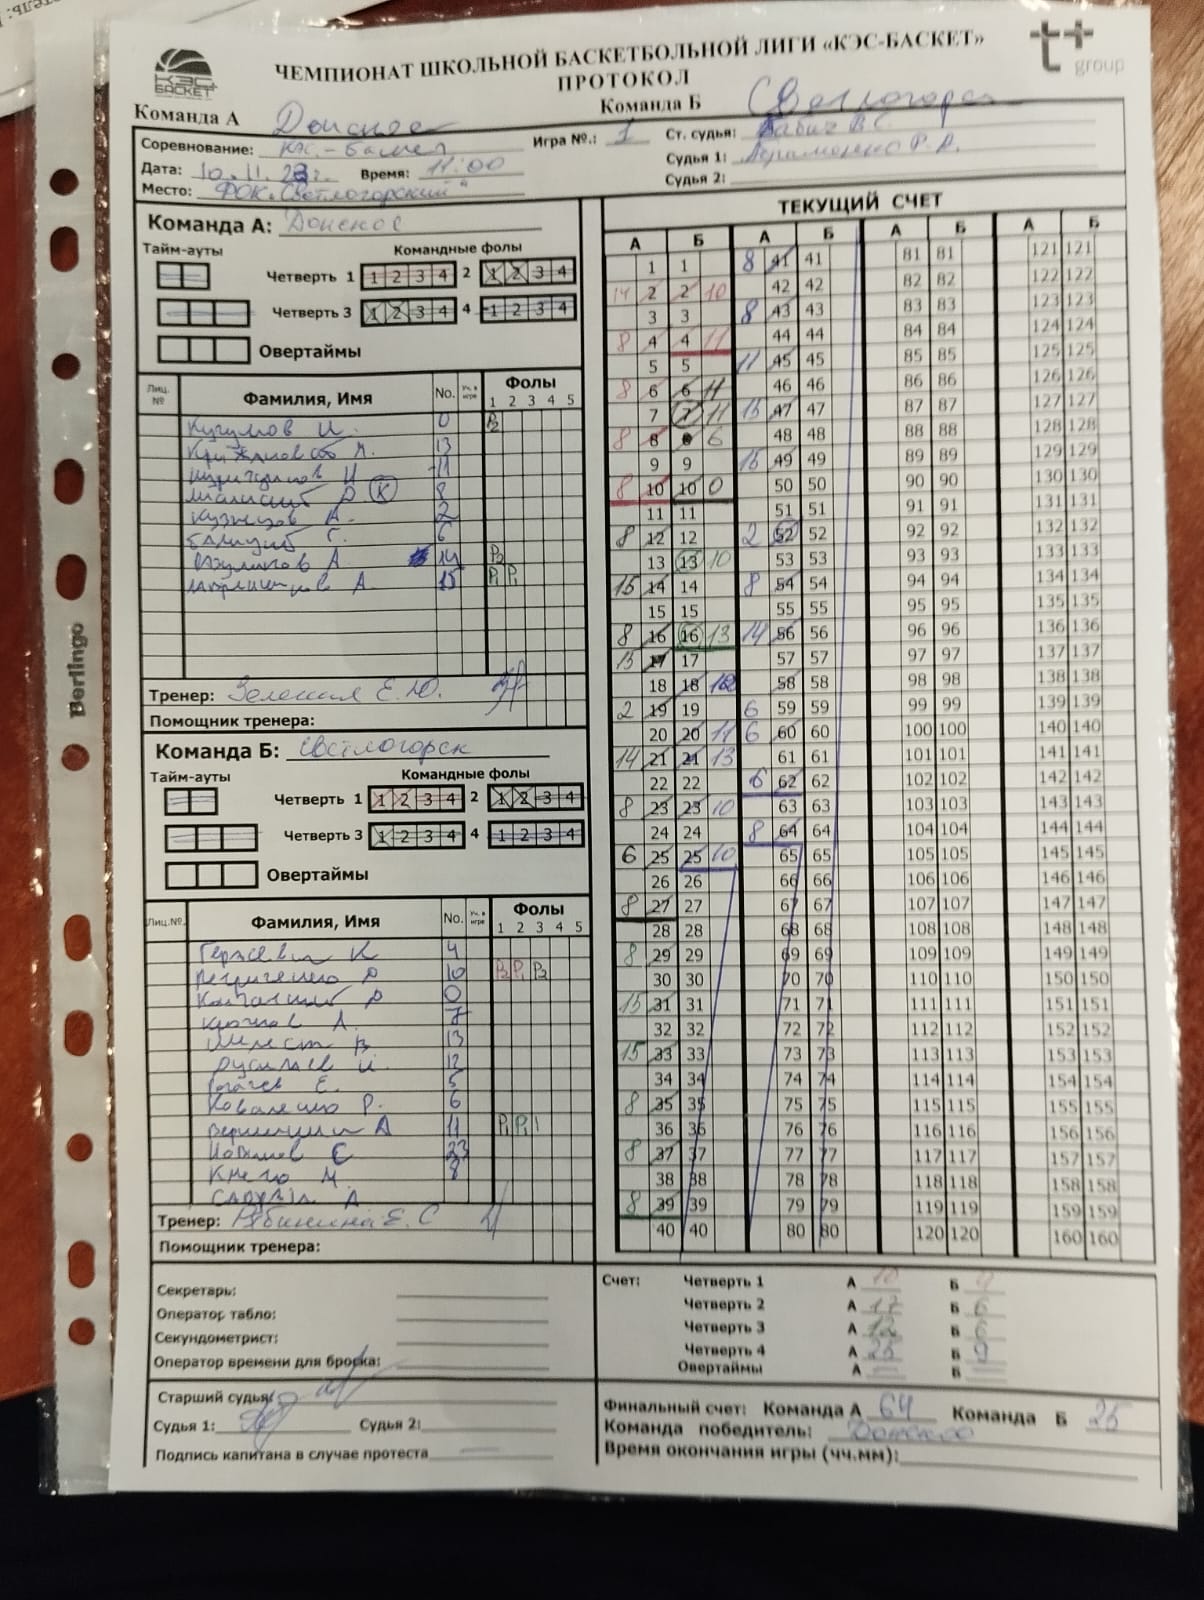 ЧЕМПИОНАТ ШКОЛЬНОЙ БАСКЕТБОЛЬНОЙ ЛИГИ «КЭС-БАСКЕТ»
ПРОТОКОЛ
КЭС БАСКЕТ
t+ group
Команда А Донское Команда Б Светлогорск
Соревнование: Кэс-баскет Игра №.: 1 Ст. судья: Бабич В.С.
Дата: 10.11.23г. Время: 11:00 Судья 1:
Место: ФОК "Светлогорский" Судья 2:
Команда А: Донское
Тайм-ауты Командные фолы
Четверть 1 1 2 3 4 2 1 2 3 4
Четверть 3 1 2 3 4 4 1 2 3 4
Овертаймы
Лиц. № Фамилия, Имя No. Уч. в игре Фолы 1 2 3 4 5
И. 0 P2
А. 13
И 11
Р (К) 8
Кузнецов А. 2
Г. 6
А 14 P2
А. 15 P1 P1
Тренер: Е.Ю.
Помощник тренера:
Команда Б: Светлогорск
Тайм-ауты Командные фолы
Четверть 1 1 2 3 4 2 1 2 3 4
Четверть 3 1 2 3 4 4 1 2 3 4
Овертаймы
Лиц.№. Фамилия, Имя No. Уч. в игре Фолы 1 2 3 4 5
К 4
10 P2 P1 P2
0
А. 7
В 13
И. 12
Е. 5
Коваленко Р. 6
А 11 P1 P1
Е 23
М. 8
А
Тренер: Е.С
Помощник тренера:
Секретарь:
Оператор табло:
Секундометрист:
Оператор времени для броска:
Старший судья:
Судья 1: Судья 2:
Подпись капитана в случае протеста
ТЕКУЩИЙ СЧЕТ
А Б А Б А Б А Б
1 1 8 41 41 81 81 121 121
14 2 2 10 42 42 82 82 122 122
3 3 8 43 43 83 83 123 123
8 4 4 11 44 44 84 84 124 124
5 5 11 45 45 85 85 125 125
8 6 6 11 46 46 86 86 126 126
7 7 11 15 47 47 87 87 127 127
8 8 8 6 48 48 88 88 128 128
9 9 15 49 49 89 89 129 129
8 10 10 0 50 50 90 90 130 130
11 11 51 51 91 91 131 131
8 12 12 2 52 52 92 92 132 132
13 13 10 53 53 93 93 133 133
15 14 14 8 54 54 94 94 134 134
15 15 55 55 95 95 135 135
8 16 16 13 14 56 56 96 96 136 136
15 17 17 57 57 97 97 137 137
18 18 12 58 58 98 98 138 138
2 19 19 6 59 59 99 99 139 139
20 20 11 6 60 60 100 100 140 140
14 21 21 13 61 61 101 101 141 141
22 22 6 62 62 102 102 142 142
8 23 23 10 63 63 103 103 143 143
24 24 8 64 64 104 104 144 144
6 25 25 10 65 65 105 105 145 145
26 26 66 66 106 106 146 146
8 27 27 67 67 107 107 147 147
28 28 68 68 108 108 148 148
8 29 29 69 69 109 109 149 149
30 30 70 70 110 110 150 150
15 31 31 71 71 111 111 151 151
32 32 72 72 112 112 152 152
15 33 33 73 73 113 113 153 153
34 34 74 74 114 114 154 154
8 35 35 75 75 115 115 155 155
36 36 76 76 116 116 156 156
8 37 37 77 77 117 117 157 157
38 38 78 78 118 118 158 158
8 39 39 79 79 119 119 159 159
40 40 80 80 120 120 160 160
Счет: Четверть 1 А 10 Б 4
Четверть 2 А 17 Б 6
Четверть 3 А 12 Б 6
Четверть 4 А 25 Б 9
Овертаймы А — Б —
Финальный счет: Команда А 64 Команда Б 25
Команда победитель: Донское
Время окончания игры (чч.мм):
Berlingo